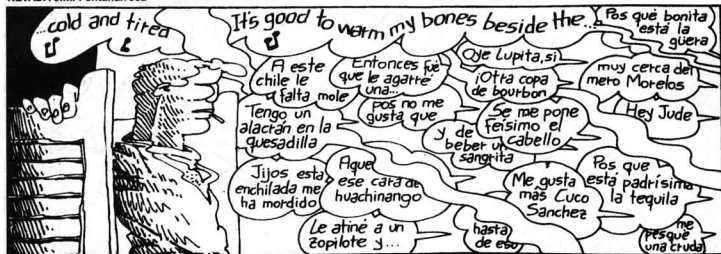 ...cold and tired
It's good to warm my bones beside the...
Pos qué bonita
está la
güera
A este
chile le
falta mole
Entonces fué
que le agarré
una...
Oye Lupita, si
¡Otra copa
de bourbon
muy cerca del
mero Morelos
Hey Jude
Tengo un
alacrán en la
quesadilla
pos no me
gusta que
Se me pone
feísimo el
cabello
y de
beber un
sangrita
Jijos esta
enchilada me
ha mordido
Aque
ese cara de
huachinango
Me gusta
más Cuco
Sanchez
Pos que
está padrísima
la tequila
Le atiné a un
zopilote y...
hasta
de eso
me
pesqué
una cruda